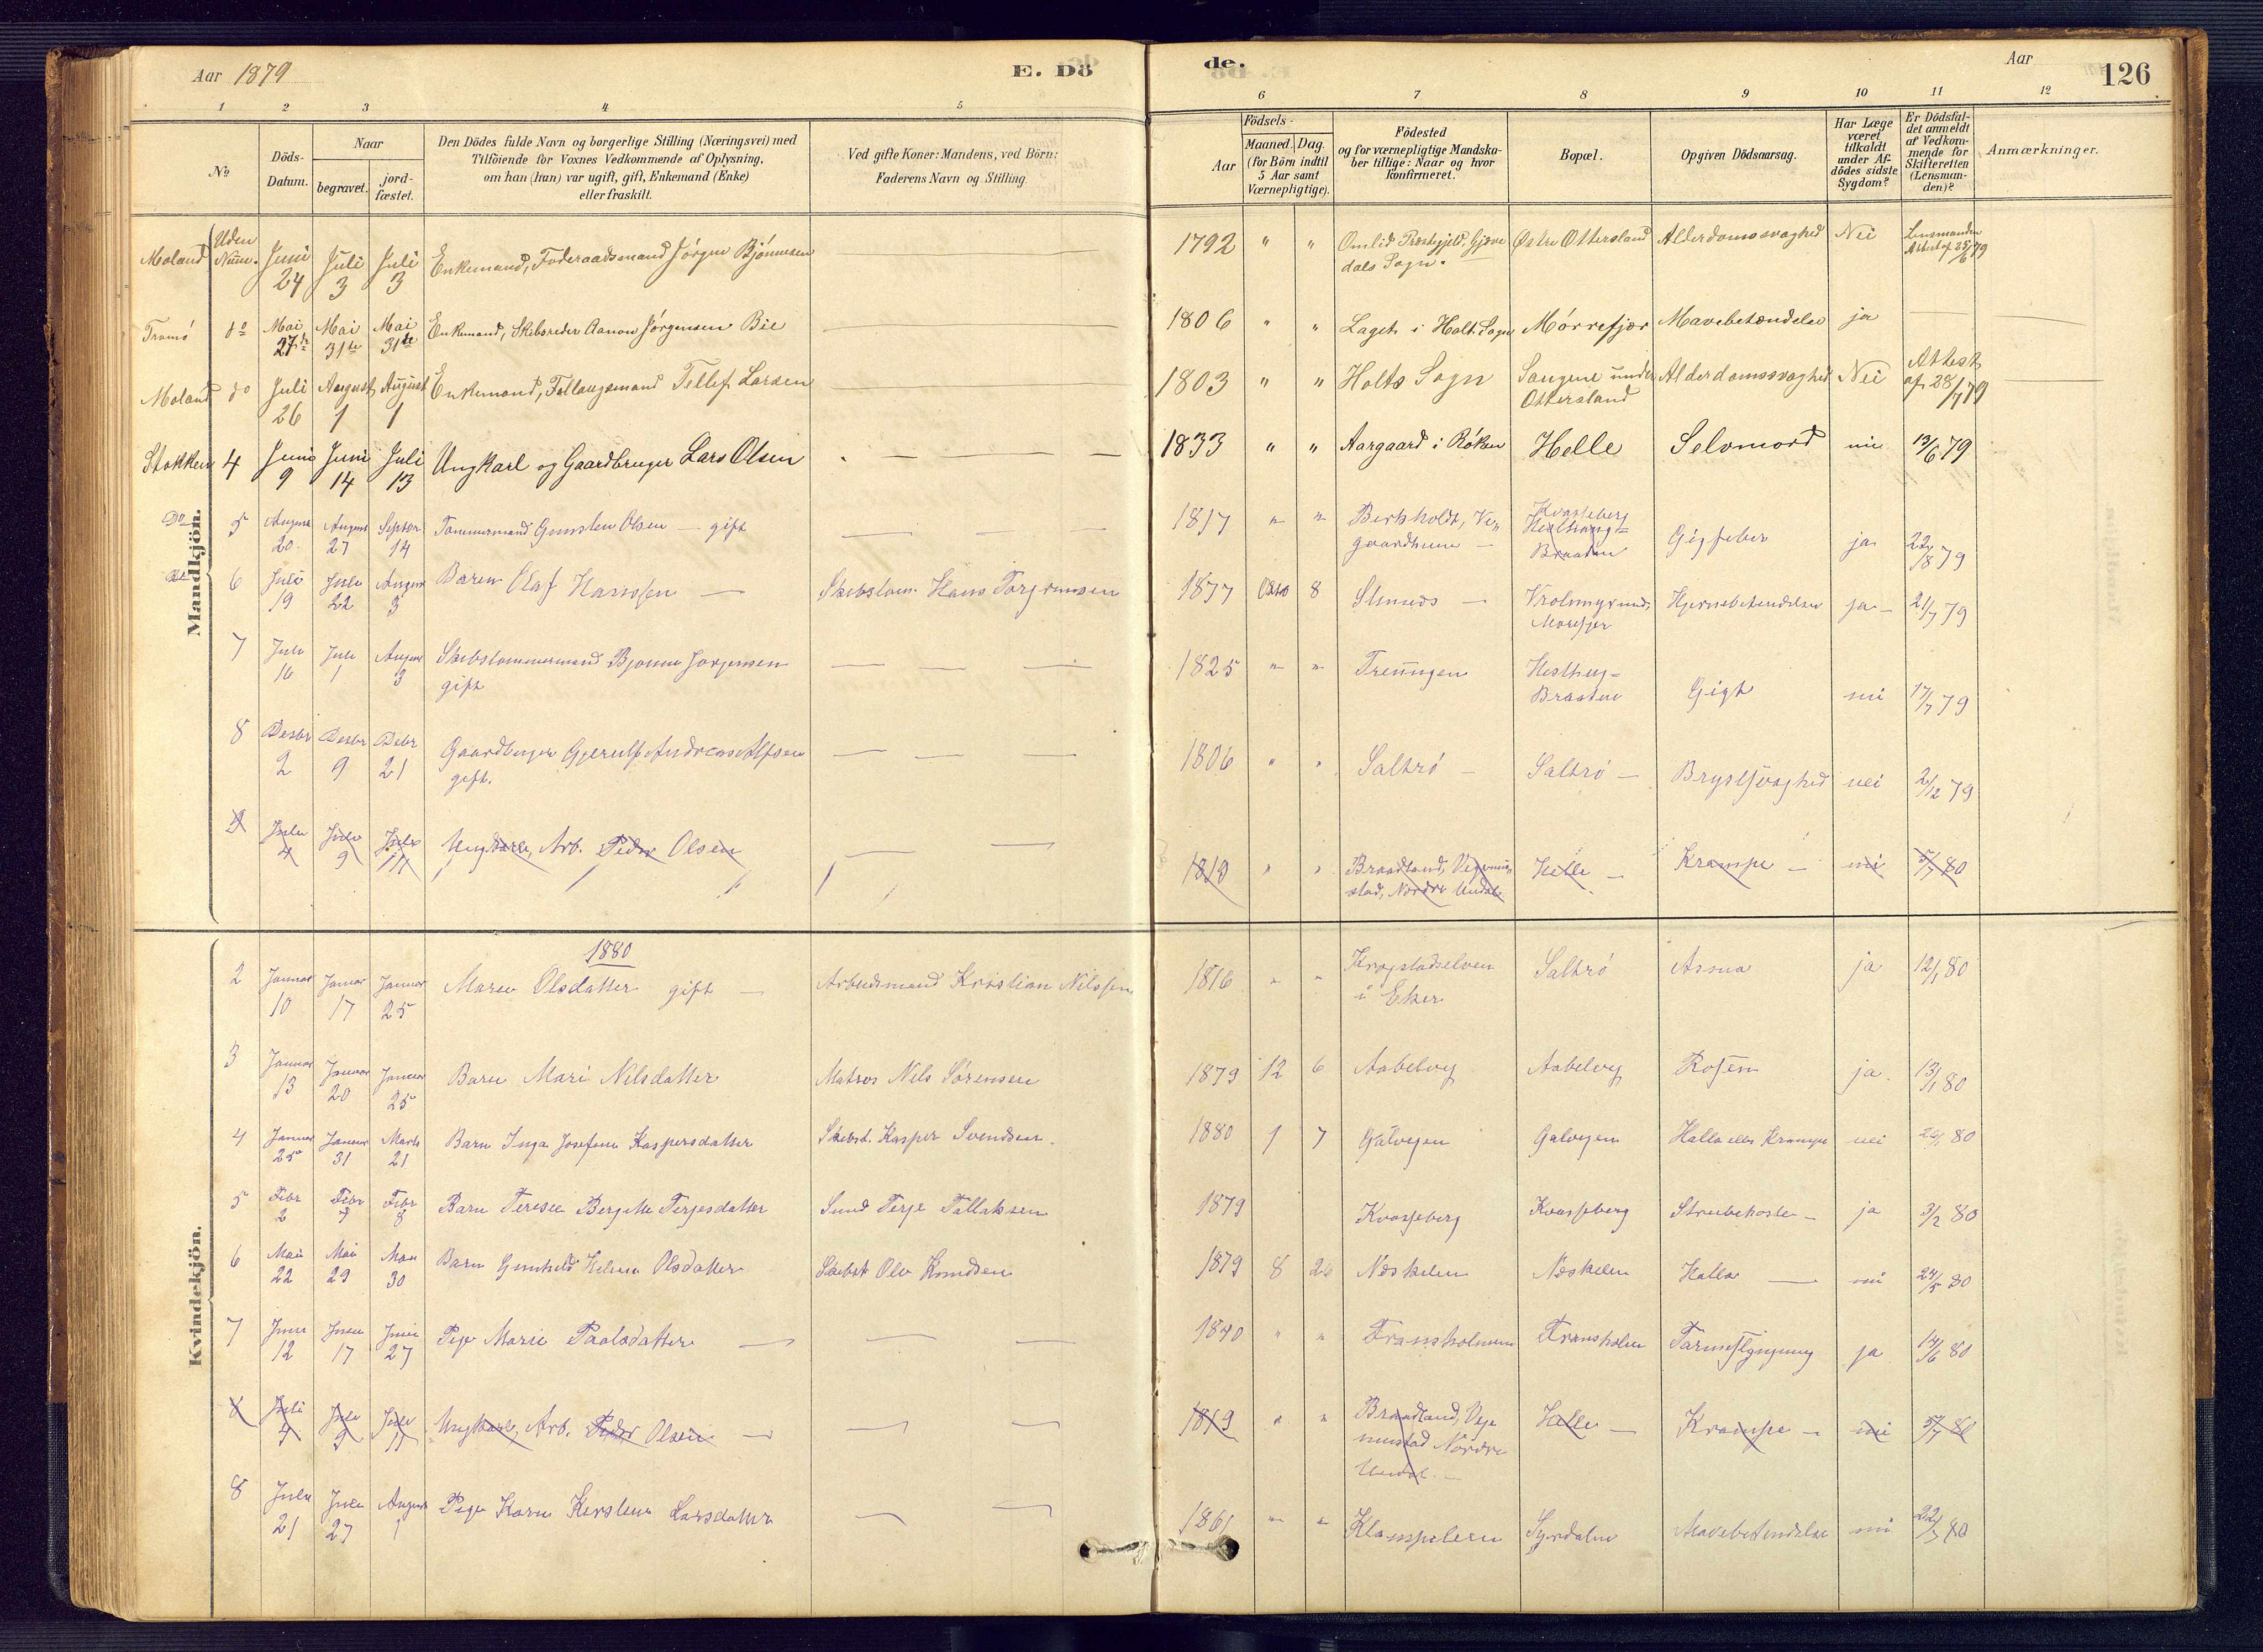 Aar 1879
E. Dö
de.
Aar
126
1 2 3 4 5 6 7 8 9 10 11 12
No
Döds-Datum.
Naar
begravet.
jord-fæstet.
Den Dödes fulde Navn og borgerlige Stilling (Næringsvei) med
Tilföiende for Voxnes Vedkommende af Oplysning,
om han (hun) var ugift, gift, Enkemand (Enke)
eller fraskilt.
Ved gifte Koner: Mandens, ved Börn:
Faderens Navn og Stilling.
Födsels-
Aar
Maaned. Dag.
(for Börn indtil
5 Aar samt
Værnepligtige).
Födested
og for værnepligtige Mandska-
ber tillige: Naar og hvor
konfirmeret.
Bopæl.
Opgiven Dödsaarsag.
Har Læge
været
tilkaldt
under Af-
dödes sidste
Sygdom?
Er Dödsfal-
det anmeldt
af Vedkom-
mende for
Skifteretten
(Lensman-
den)?
Anmærkninger.
Mandkjön.
Moland Uden Num. Juni 24 Juli 3 Juli 3 Enkemand, Föderaadsmand Jörgen Bjönnesen 1792 " " Omlid Præstgjeld, Gjøvedals Sogn. Østre Ottersland Alderdomssvaghed Nei Lensmanden Attest af 25/6 79
Tromö do Mai 27de Mai 31te Mai 31te Enkemand, Skibsreder Aanon Jörgensen Bie 1806 " " Laget i Holt Sogn Mörrefjær Mavebetændelse ja
Moland do Juli 26 August 1 August 1 Enkemand, Fellaugsmand Tellef Larsen 1803 " " Holts Sogn Songene under Ottersland Alderdomssvaghed Nei Attest af 28/7 79
Stokken 4 Juni 9 Juni 14 Juli 13 Ungkarl og Gaardbruger Lars Olsen 1833 " " Aargaard i Röken Helle Selvmord nei 13/6 79
Do 5 August 20 August 27 Septbr 14 Tømmermand Gunsten Olsen - gift 1817 " " Birkholdt, Kvasseberg Braaten Gigfeber ja 22/8 79
Do 6 Juli 19 Juli 22 August 3 Barn Olaf Hanssen Skibstøm. Hans Torgersen 1877 8 Morefjær Hjernebetendelse ja 21/7 79
7 Juli 16 Juli August 3 Skibstømmermand Bjønne Jørgensen gift 1825 " " Treungen Hesthag-Braaten Gigt nei 17/7 79
8 Desbr 2 Desbr 9 Debr 21 Gaardbruger Gjerulf Andreas Alfsen gift. 1806 " " Saltrö Saltrö Brystsvaghed nei 2/12 79
9 Juli 4 Juli 9 Juli 11 Ungkarl, Arb. Peder Olsen 1819 " " Braadland, Vegmunstad, Nordre Undal Helle Krampe nei 5/7 80
Kvindekjön.
1880
2 Januar 10 Januar 17 Januar 25 Maren Olsdatter gift Arbeidsmand Kristian Nilssen 1816 " " Krogstadelven i Eker Saltrö Asma ja 12/1 80
3 Januar 13 Januar 20 Januar 25 Barn Mari Nilsdatter Matros Nils Sörensen 1879 12 6 Aabelvig Aabelvig Rosen ja 13/1 80
4 Januar 25 Januar 31 Marts 21 Barn Inga Josefine Kaspersdatter Skibst. Kasper Svendsen 1880 1 7 Galvegen Galvegen Halla eller Krampe nei 26/1 80
5 Febr 2 Febr 7 Febr 8 Barn Terese Bergitte Terjesdatter Terje Tallaksen 1879 Kvasseberg Kvasseberg Strubehoste ja 3/2 80
6 Mai 22 Mai 29 Mai 30 Barn Gunhild Helene Olsdatter Skibst Ole Knudsen 1879 8 Næskelen Næskelen Halla nei 24/5 80
7 Juni 12 Juni 17 Juni 27 Pige Marie Paalsdatter 1840 " " Fransholmen Fransholm Tarmslyngning ja 14/6 80
8 Juli 4 Juli 9 Juli 11 Ungkarl, Arb. Peder Olsen 1819 " " Braadland, Vegmunstad Nordre Undal Helle Krampe nei 5/7 80
8 Juli 21 Juli 27 August 1 Pige Karen Kirstine Larsdatter 1861 " " Mavebetendelse nei 22/7 80